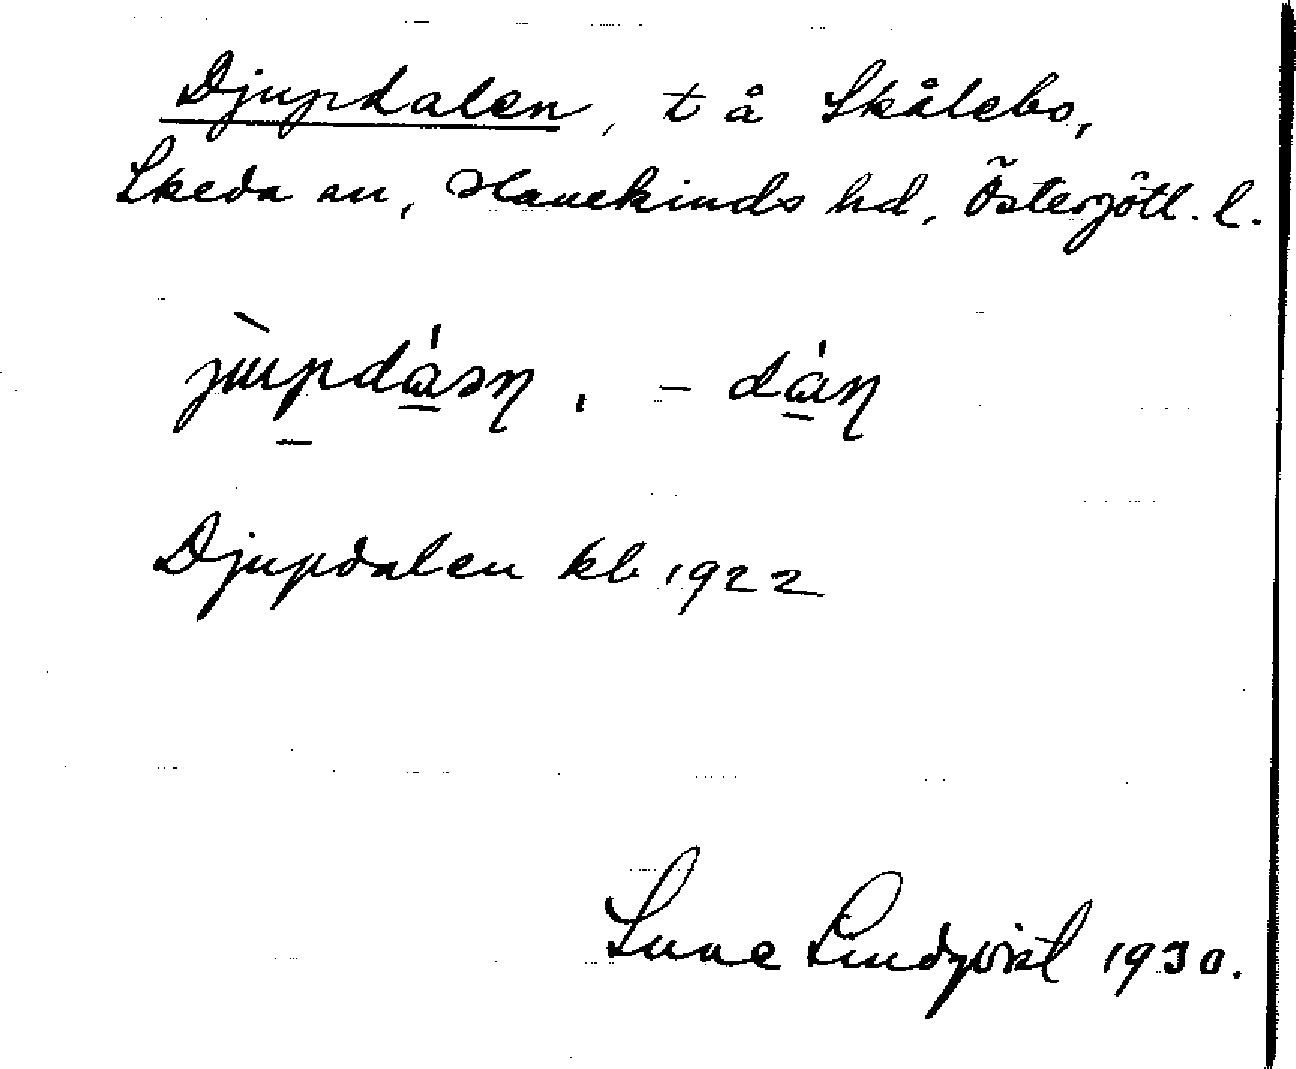 Djupdalen, t å Skålebo,
Skeda sn, Hanekinds hd, Östergötl. l.
jùpdáən, -dán
Djupdalen kb 1922
Sune Lindqvist 1930.